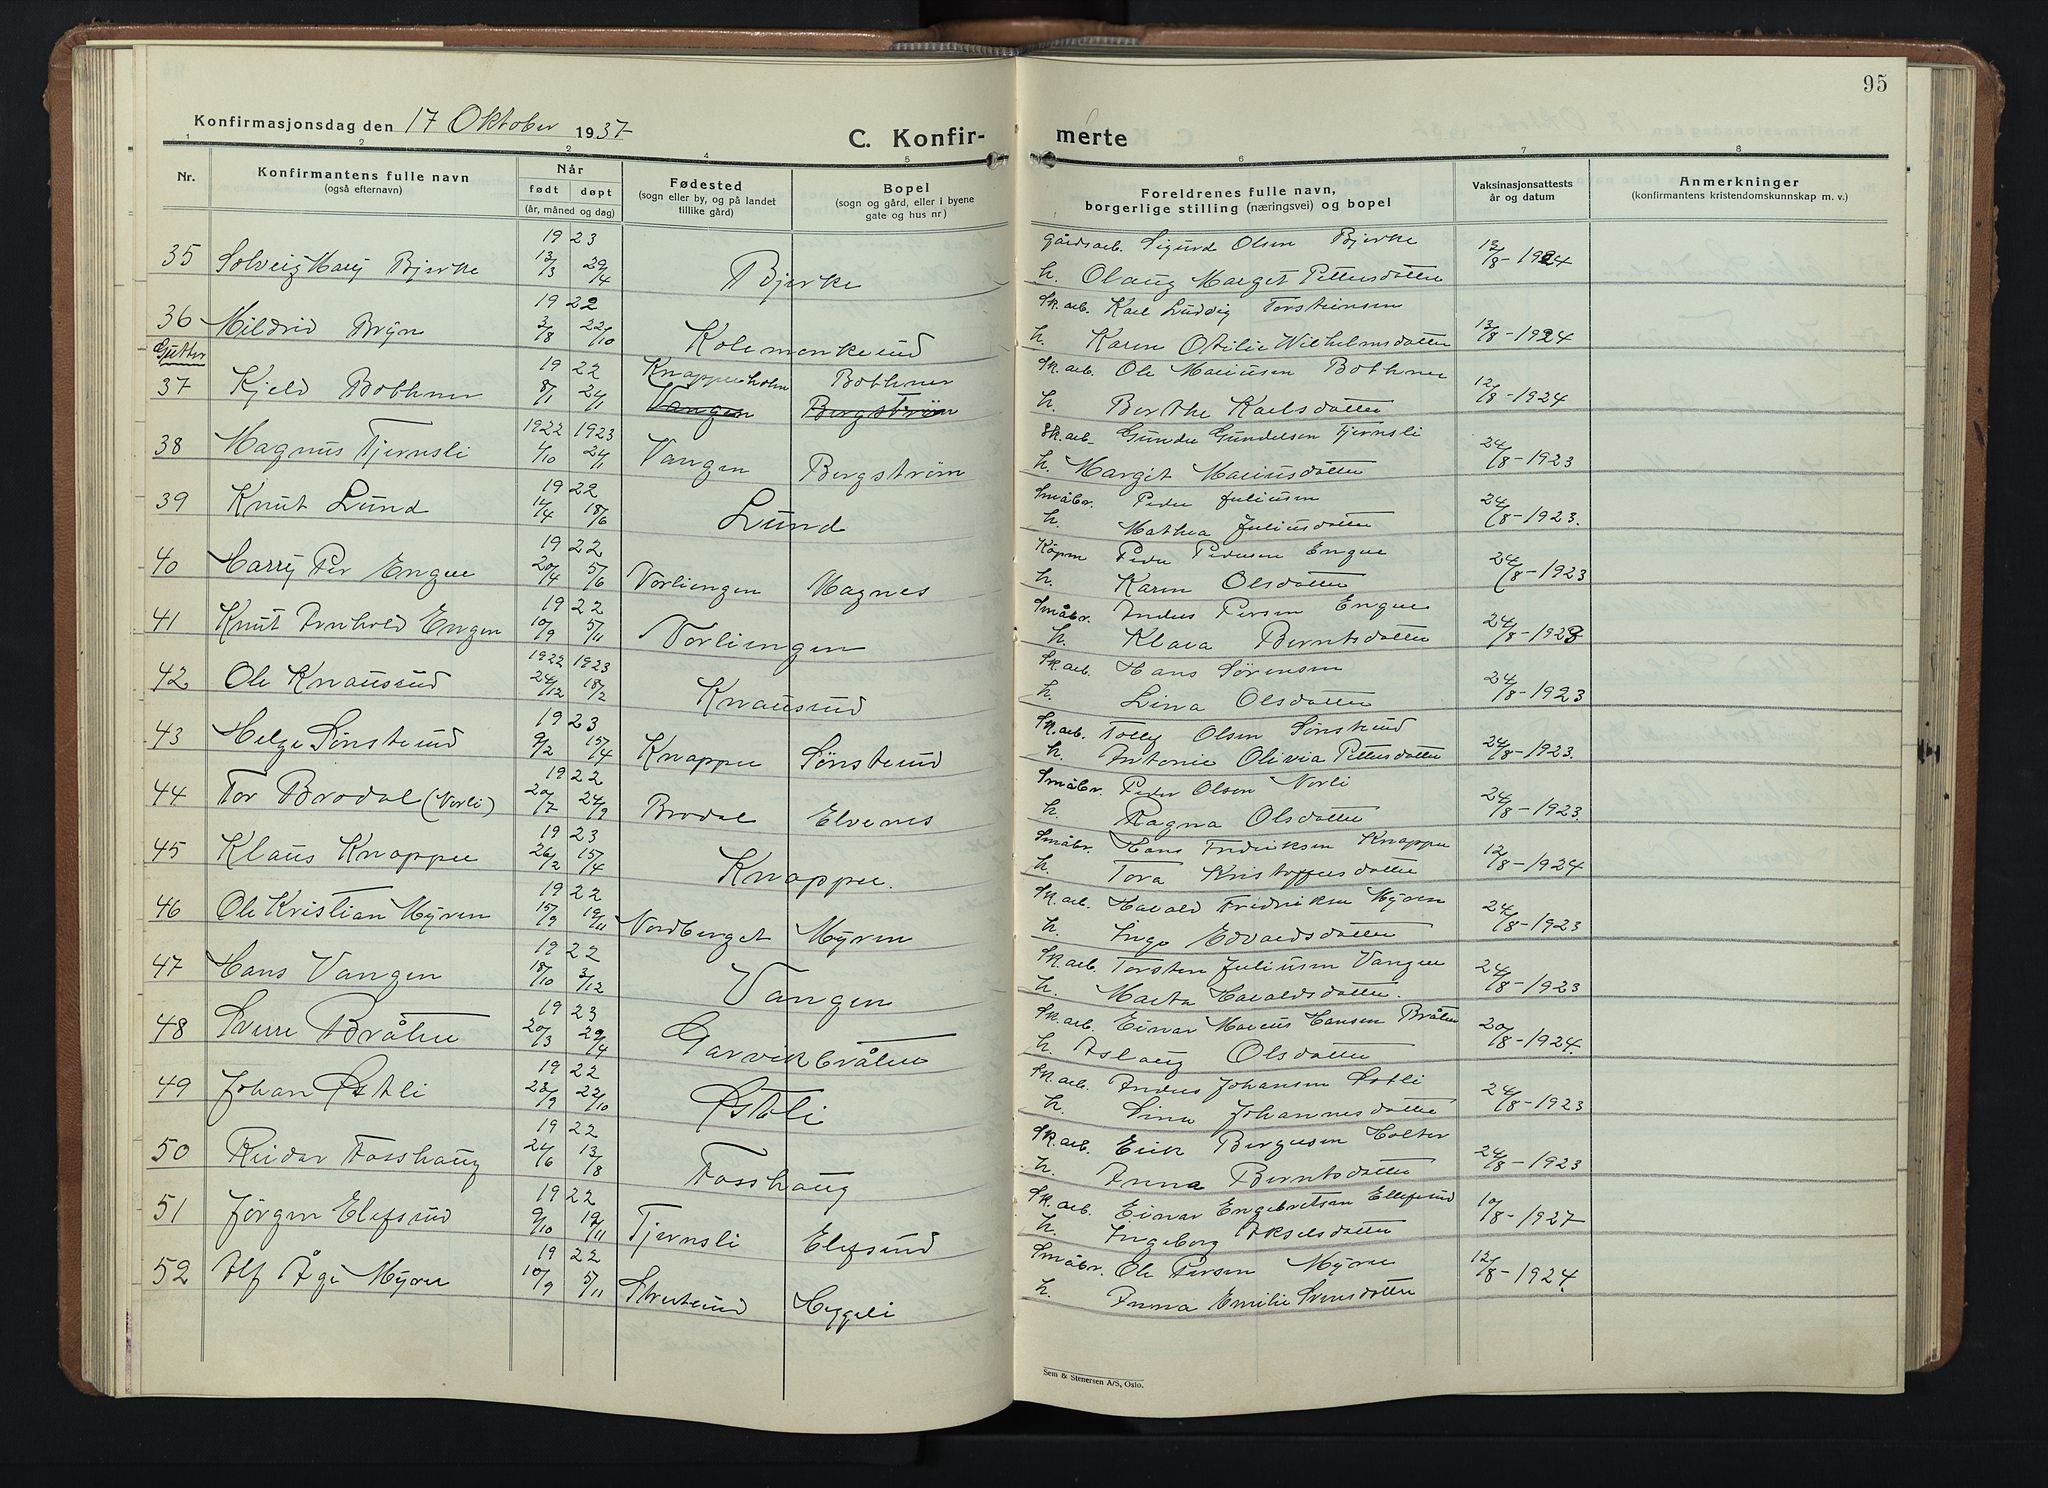 95
Konfirmasjonsdag den 17 Oktober 1937
C. Konfir-
merte
1 2 2 4 5 6 7 8
Nr.
Konfirmantens fulle navn
(også efternavn)
Når
født døpt
(år, måned og dag)
Fødested
(sogn eller by, og på landet
tillike gård)
Bopel
(sogn og gård, eller i byene
gate og hus nr)
Foreldrenes fulle navn,
borgerlige stilling (næringsvei) og bopel
Vaksinasjonsattests
år og datum
Anmerkninger
(konfirmantens kristendomskunnskap m. v.)
1923 gårdsarb. Sigurd Olsen Bjerke
35 Solveig Mary Bjerke 13/3 29/4 Bjerke h. Olaug Marget Pettersdatter 12/8-1924
1922 Sk.arb. Karl Ludvig Torsteinsen
36 Mildrid Bryn 3/8 22/10 Kolemonkerud h. Karen Otilie Wilhelmsdatter 12/8-1924
Gutter
1922 Knapperholm Bothner Sk.arb. Ole Mariusen Bothner
37 Kjeld Bothner 8/1 24/1 Vangen Bergstrøm h. Berthe Karlsdatter 12/8-1924
1922 1923 Sk.arb. Gunder Gundersen Tjernsli
38 Magnus Tjernsli 4/10 24/1 Vangen Bergstrøm h. Margit Mariusdatter 24/8-1923
1922 Småbr. Peder Juliusen
39 Knut Lund 14/4 18/6 Lund h. Mathea Juliusdatter 24/8-1923.
1922 Kjøpm Peder Pedersen Engen
40 Harry Per Engen 20/4 5/6 Vorliengen Magnes h. Karen Olsdatter 24/8-1923
1922 Småbr. Anders Persen Engen
41 Knut Arnhold Engen 10/9 5/11 Vorliengen h. Klara Berntsdatter 24/8-1923
1922 1923 Sk.arb. Hans Sørensen
42 Ole Knausrud 24/12 18/2 Knausrud h. Lina Olsdatter 24/8-1923
1923 Sk.arb. Tolly Olsen Sønsterud
43 Helge Sønsterud 9/2 15/4 Knapper Sønsterud h. Antonie Olivia Pettersdatter 24/8-1923.
1922 Småbr. Peder Olsen Vorli
44 Tor Brodal (Vorli) 20/7 24/9 Brodal Elvenes h. Ragna Olsdatter 24/8-1923.
1923 Småbr. Hans Fredriksen Knapper
45 Klaus Knapper 26/2 15/4 Knapper. h. Tora Kristoffersdatter 12/8-1924
1922 Sk.arb. Harald Fredriksen Myren
46 Ole Kristian Myren 15/9 19/11 Nordberget Myren h. Inga Edvardsdatter 24/8-1923
1922 Sk.arb. Torsten Juliusen Vangen
47 Hans Vangen 18/10 3/12 Vangen h. Marta Haraldsdatter. 24/8-1923
1923 Sk.arb. Einar Marius Hansen Bråten
48 Sverre Bråten 20/3 29/4 Garvikbråten h. Aslaug Olsdatter 20/8-1924.
1922 Sk.arb. Anders Johansen Østli
49 Johan Østli 23/9 22/10 Østli h. Sina Johannesdatter 24/8-1923
1922 Sk.arb. Erik Bergersen Holter
50 Reidar Fosshaug 24/6 13/8 Fosshaug h. Anna Berntsdatter 24/8-1923
1922 Sk.arb. Einar Engebretsen Ellefsrud
51 Jørgen Elefsrud 9/10 19/11 Tjernsli Elefsrud h. Ingeborg Akselsdatter 10/8-1927
1922 Småbr. Ole Persen Myren
52 Alf Åge Myrer 10/9 5/11 Skresterud Heggeli h. Anna Emilie Svensdatter 12/8-1924.
Sem & Stenersen A/S, Oslo.